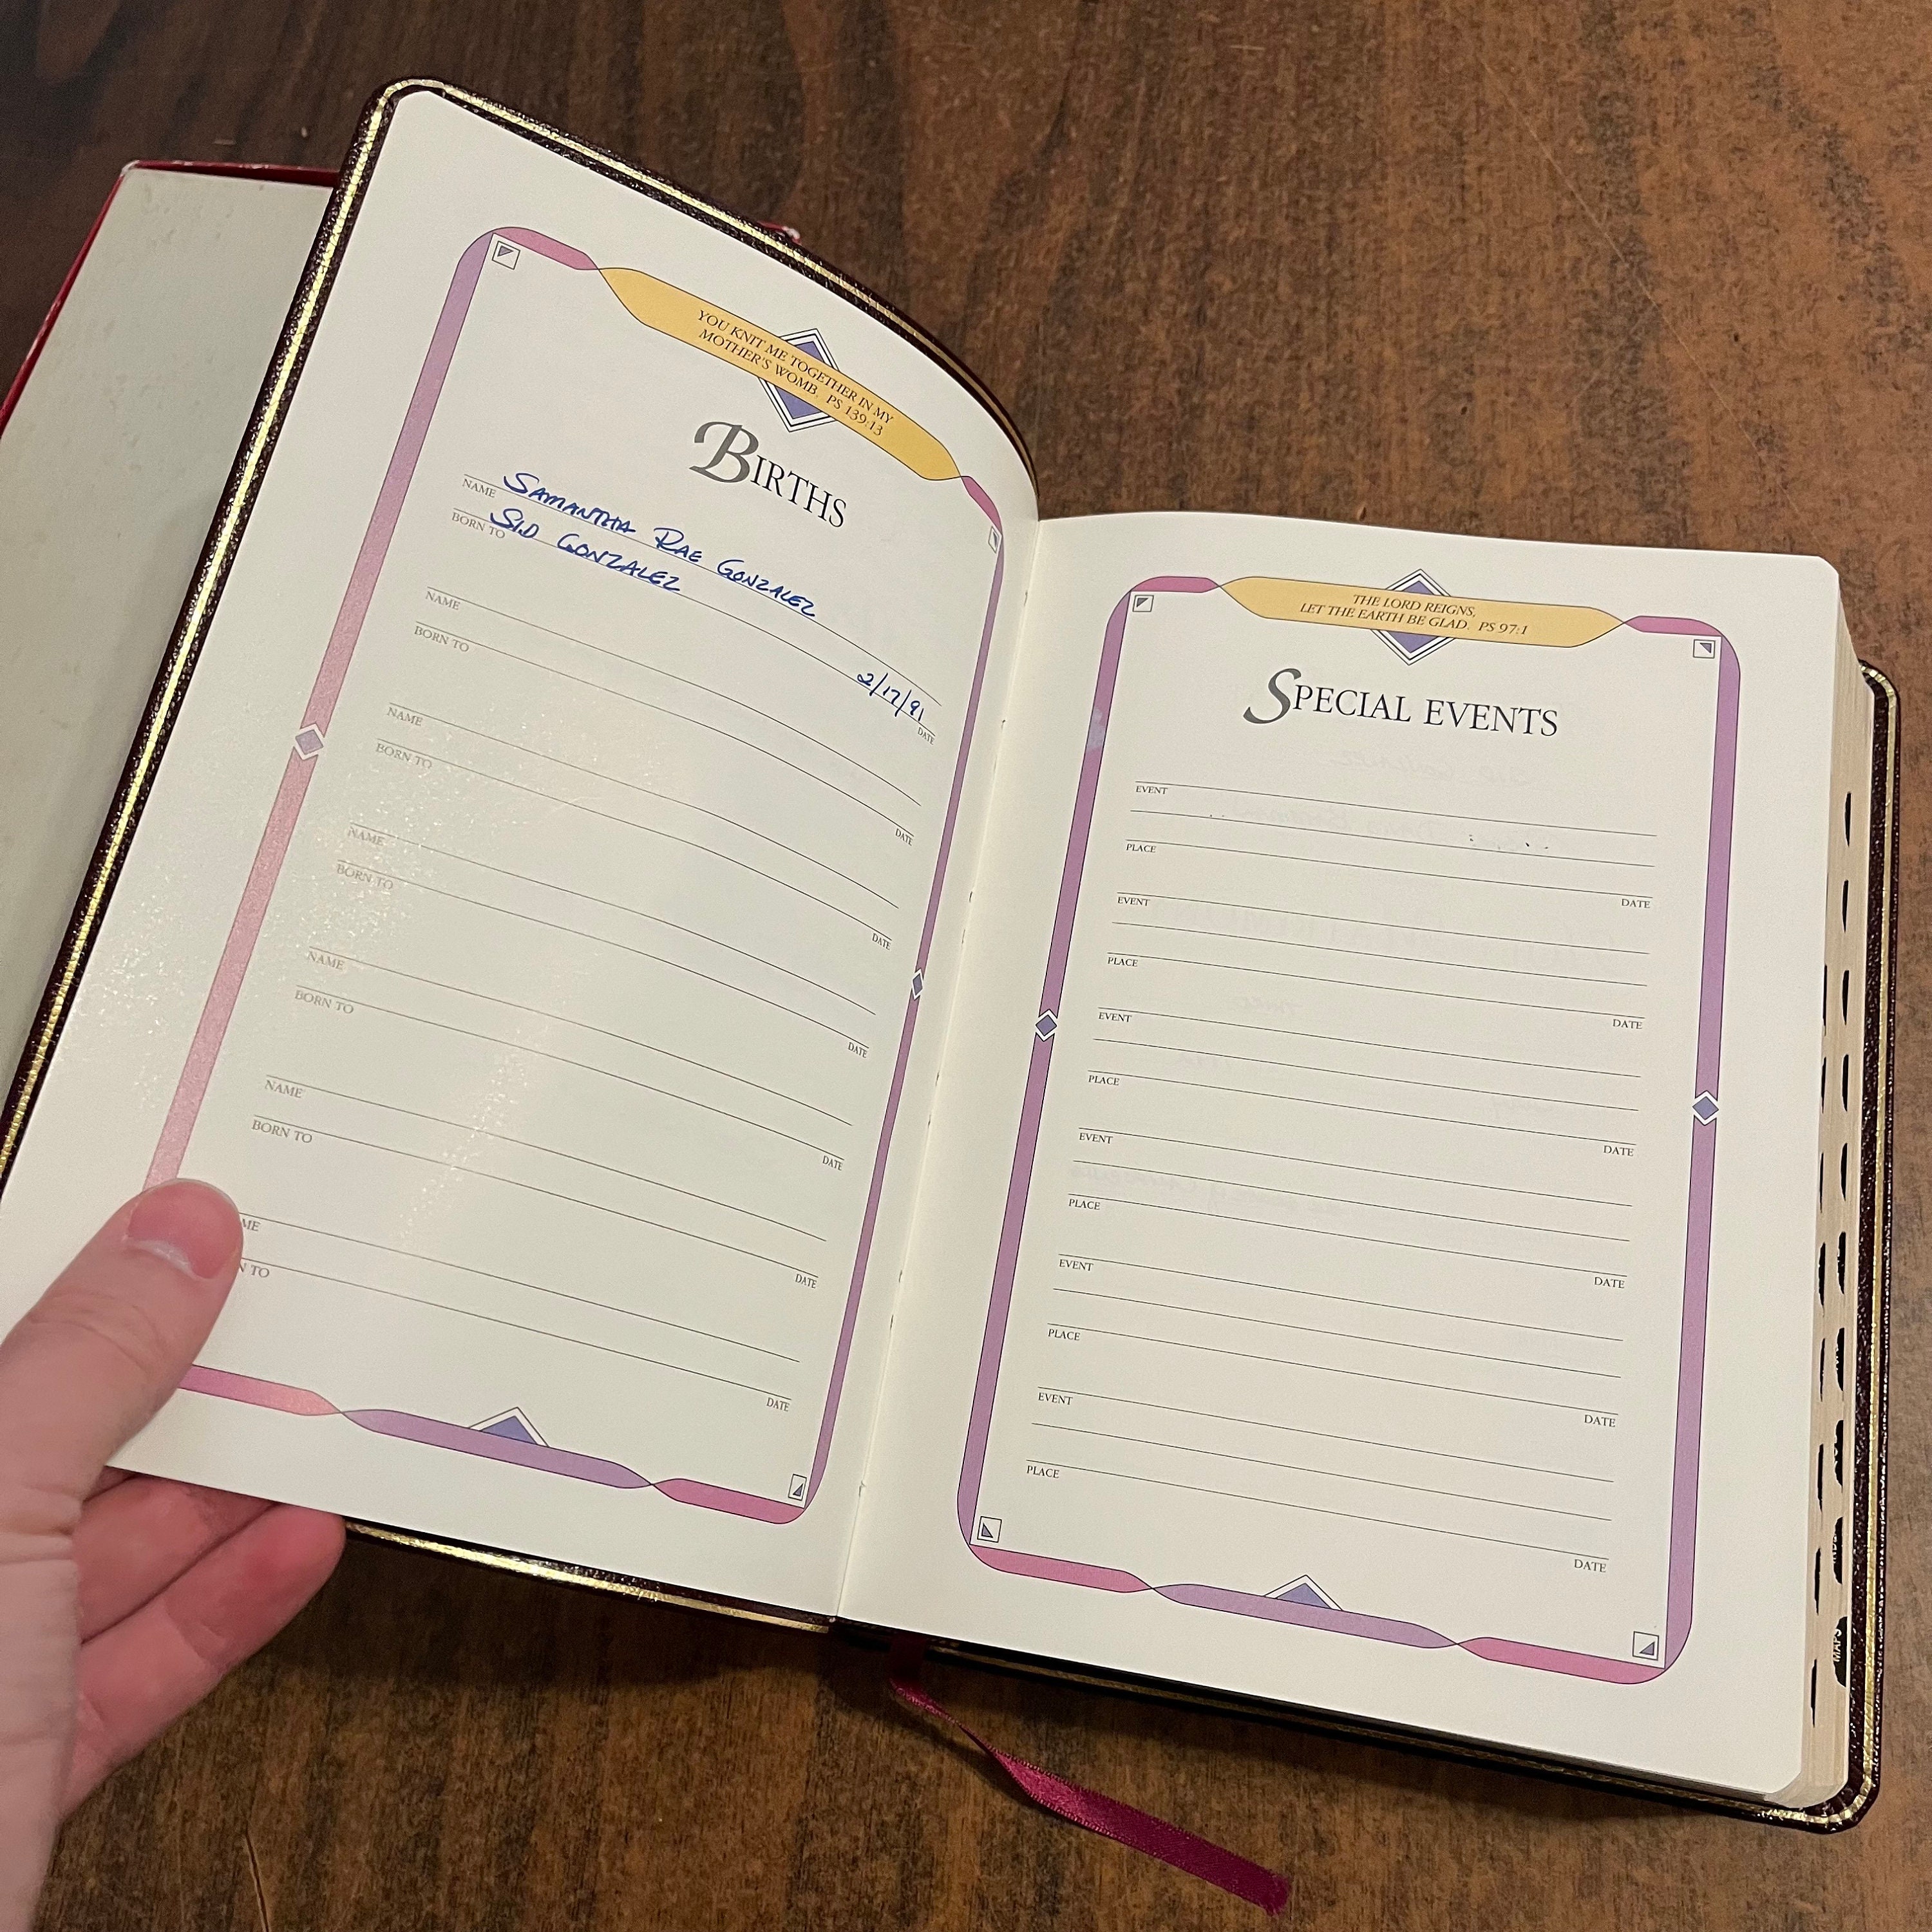 YOU KNIT ME TOGETHER IN MY
MOTHER'S WOMB. PS 139:13
BIRTHS
SAMANTHA RAE GONZALEZ
NAME
SID GONZALEZ
BORN TO
2/17/91
DATE
NAME
BORN TO
DATE
NAME
BORN TO
DATE
NAME
BORN TO
DATE
NAME
BORN TO
DATE
NAME
BORN TO
DATE
ME
TO
DATE
THE LORD REIGNS,
LET THE EARTH BE GLAD. PS 97:1
SPECIAL EVENTS
EVENT
PLACE
DATE
EVENT
PLACE
DATE
EVENT
PLACE
DATE
EVENT
PLACE
DATE
EVENT
PLACE
DATE
EVENT
PLACE
DATE
MAPS